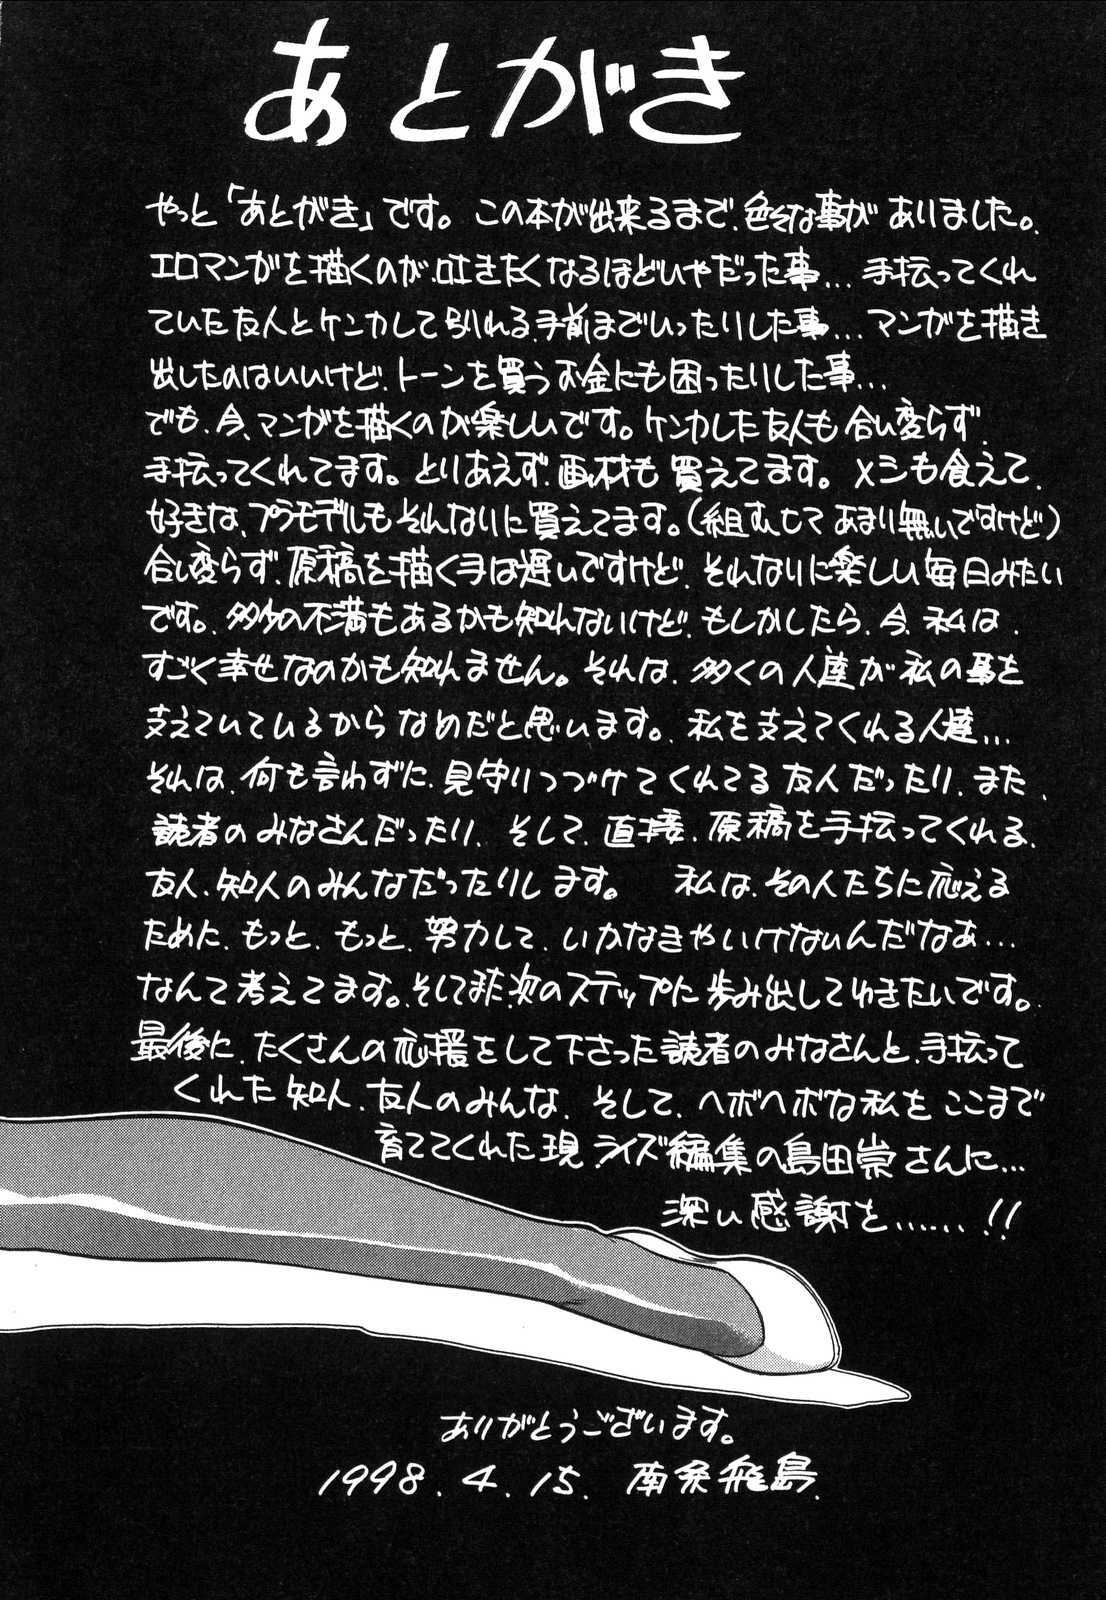 あとがき
やっと「あとがき」です。この本が出来るまで、色々な事がありました。
エロマンガを描くのが、吐きたくなるほどいやだった事…手伝ってくれ
ていた友人とケンカして別れる、手前までいったりした事…マンガを描き
出したのはいいけど、トーンを買うお金にも困ったりした事…
でも、今、マンガを描くのが楽しいです。ケンカした友人も合い変らず、
手伝ってくれてます。とりあえず、画材も買えてます。メシも食えて、
好きな、プラモデルもそれなりに買えてます。(組むヒマあまり無いですけど)
合い変らず、原稿を描く手は遅いですけど、それなりに楽しい毎日みたい
です。多少の不満もあるかも知れないけど、もしかしたら、今、私は、
すごく幸せなのかも知れません。それは、多くの人達が私の事を
支えていているからなめだと思います。私を支えてくれる人達…
それは、何も言わずに、見守りつづけてくれてる友人だったり、また、
読者のみなさんだったり、そして、直接、原稿を手伝ってくれる、
友人、知人のみんなだったりします。 私は、その人たちに応える
ために、もっと、もっと、努力して、いかなきゃいけないんだなぁ…
なんて考えてます。そしてまた次のステップに歩み出してゆきたいです。
最後に、たくさんの応援をして下さった読者のみなさんと、手伝って
くれた知人、友人のみんな、そして、ヘボヘボな私をここまで
育ててくれた現、ライズ編集の島田崇さんに…
深い感謝を……!!
ありがとうございます。
1998.4.15. 南条飛鳥.